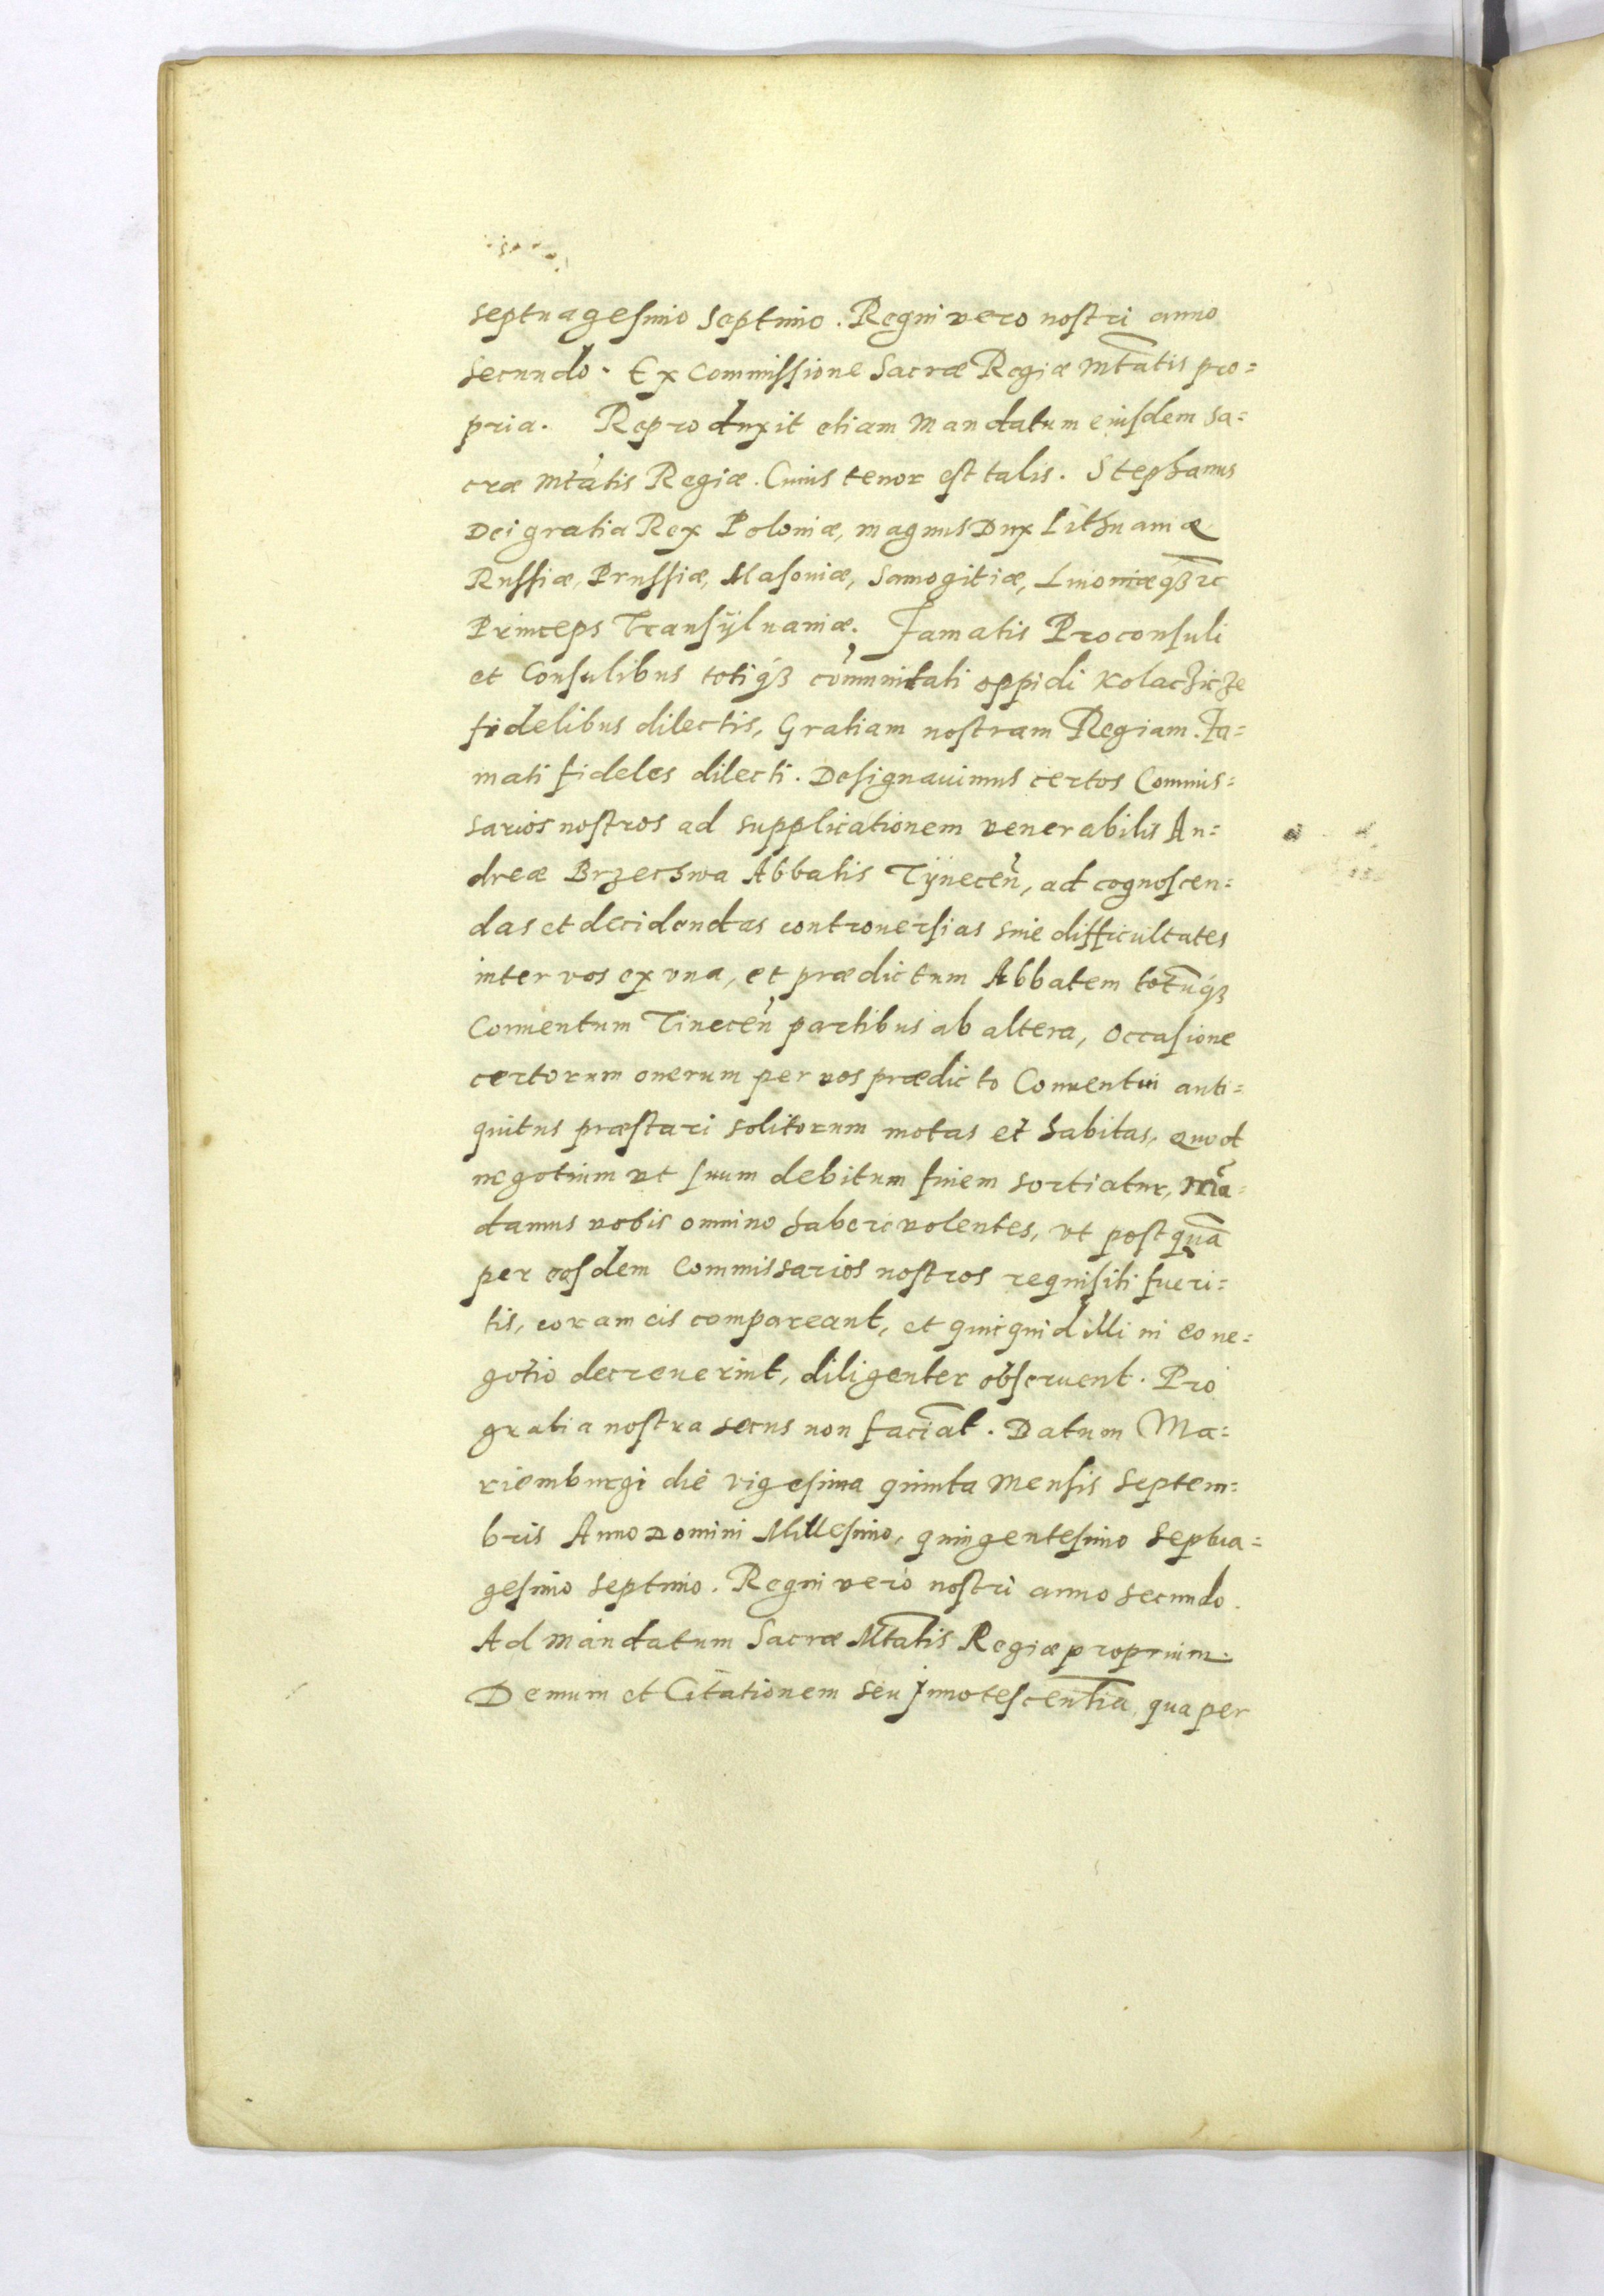 septuagesimo septimo. Regni vero nostri anno
secundo. Ex commissione Sacræ Regiæ Mtatis pro=
pria. Reproduxit etiam Mandatum eiusdem Sa=
cræ Mtatis Regiæ. Cuius tenor est talis. Stephanus
Dei gratia Rex Poloniæ, magnus Dux Lithuaniæ
Russiæ, Prussiæ, Masoviæ, Samogitiæ, Livoniæqȝ ꝛc
Princeps Transÿlvaniæ. Famatis Proconsuli
et Consulibus totiqȝ cōmunitati oppidi Kolaczicze
fidelibus dilectis, Gratiam nostram Regiam. Fa=
mati fideles dilecti. Designavimus certos Commis=
sarios nostros ad supplicationem venerabilis An=
dreæ Brzechwa Abbatis Tÿnecen̄, ad cognoscen=
das et decidendas controversias sive difficultates
inter vos ex una, et prædictum Abbatem totūqȝ
Conventum Tinecen̄ partibus ab altera, Occasione
certorum onerum per vos prædicto Conventui anti=
quitus præstari solitorum motas et habitas, quod
negotium ut suum debitum finem sortiatur, Mā=
damus vobis omnino habere volentes, ut postquā
per eosdem Commissarios nostros requisiti fueri=
tis, coram eis compareant, et quicquid illi in eo ne=
gotio decreverint, diligenter observent. Pro
gratia nostra secus non faciāt. Datum Ma=
riemburgi die vigesima quinta Mensis Septem=
bris Anno Domini Millesimo, quingentesimo Septua=
gesimo septimo. Regni vero nostri anno secundo.
Ad mandatum Sacræ Mtatis Regiæ proprium.
Demum et Citationem seu jnnotescentiā, qua per